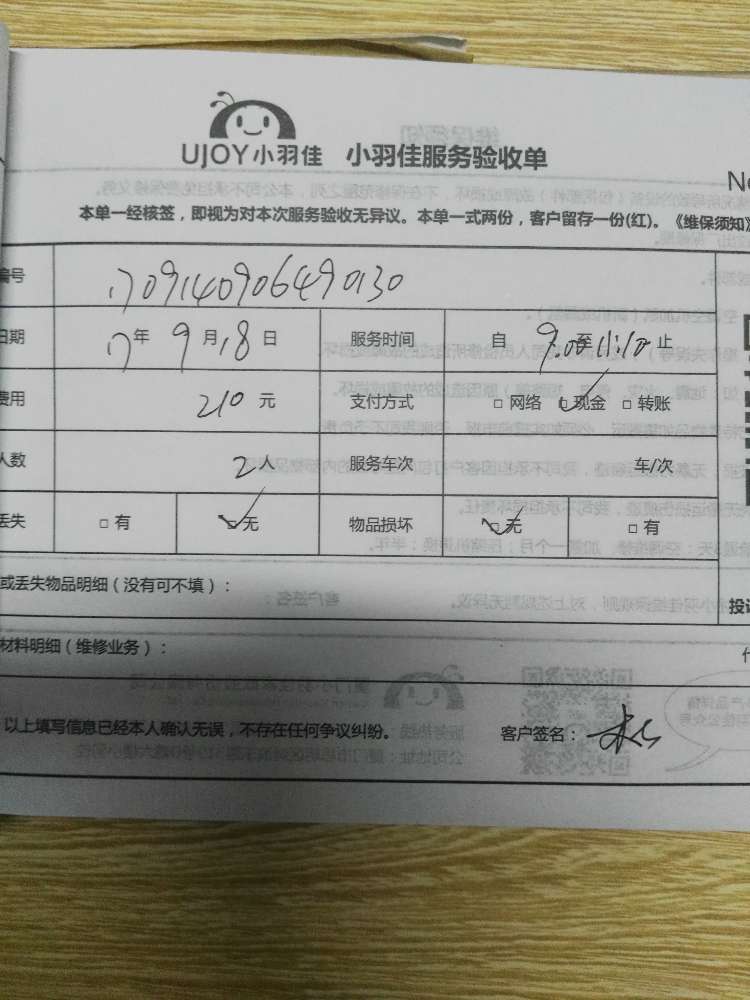 UJOY小羽佳 小羽佳服务验收单
No
本单一经核签，即视为对本次服务验收无异议。本单一式两份，客户留存一份(红)。《维保须知》
编号 1709140906490130
日期 17年9月18日 服务时间 自9:00至11:10止
费用 210元 支付方式 □网络 ☑现金 □转账
人数 2人 服务车次 车/次
丢失 □有 ☑无 物品损坏 ☑无 □有
或丢失物品明细（没有可不填）：
投诉
材料明细（维修业务）：
以上填写信息已经本人确认无误，不存在任何争议纠纷。 客户签名：